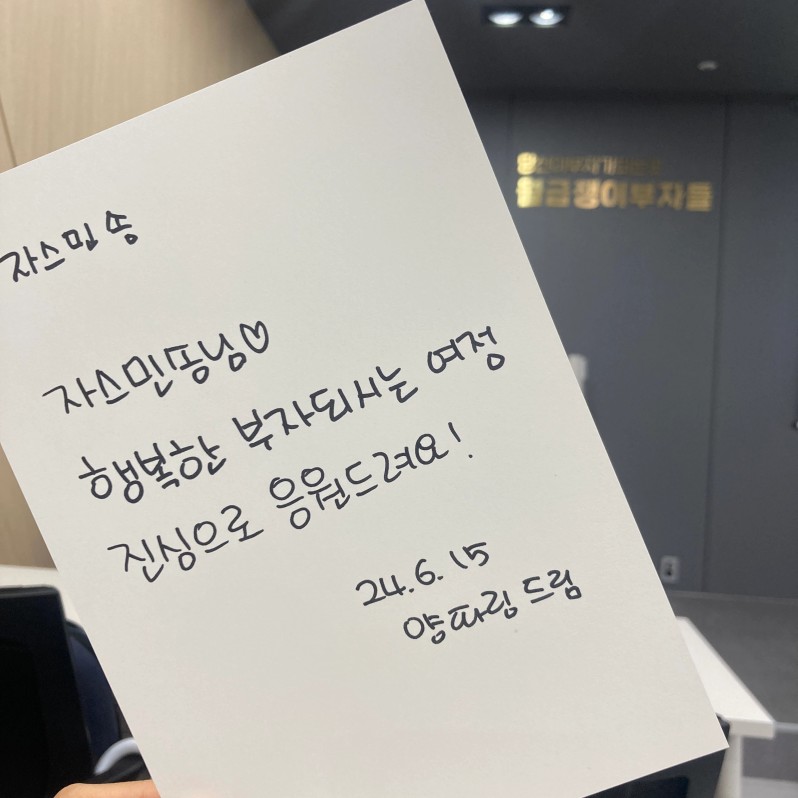 월급쟁이부자들
자스민 송
자스민쏭님♡
행복한 부자되시는 여정
진심으로 응원드려요!
24.6.15
양파링 드림